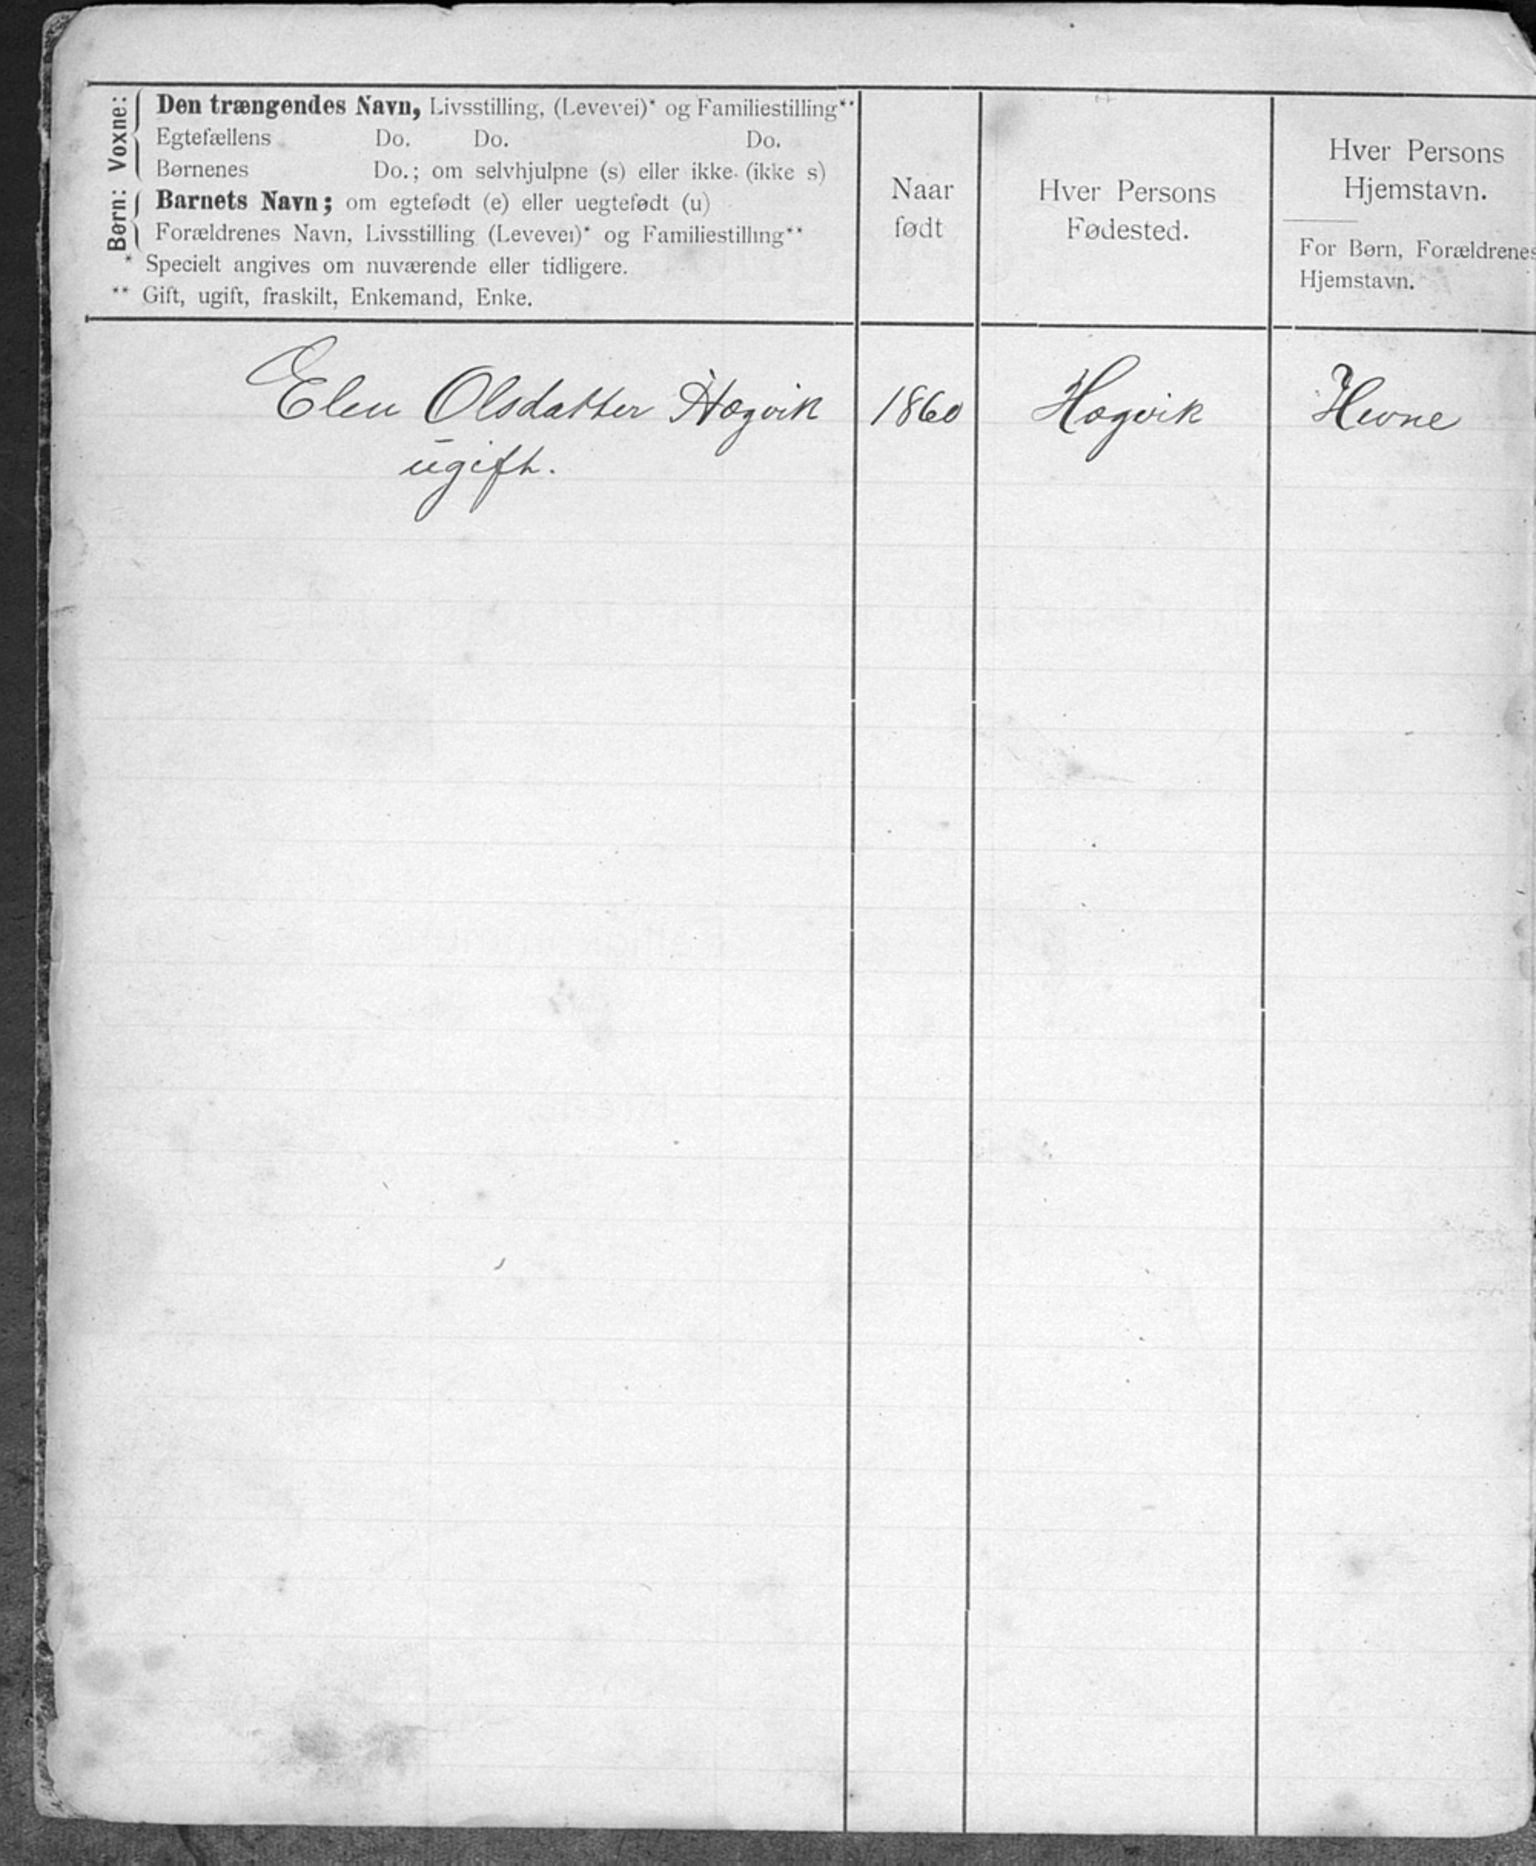 Voxne:
Den trængendes Navn, Livsstilling, (Levevei)* og Familiestilling**
Egtefællens Do. Do. Do.
Børnenes Do.; om selvhjulpne (s) eller ikke (ikke s)
Børn:
Barnets Navn; om egtefødt (e) eller uegtefødt (u)
Forældrenes Navn, Livsstilling (Levevei)* og Familiestilling**
* Specielt angives om nuværende eller tidligere.
** Gift, ugift, fraskilt, Enkemand, Enke.
Naar
født
Hver Persons
Fødested.
Hver Persons
Hjemstavn.
For Børn, Forældrenes
Hjemstavn.
Elen Olsdatter Hægvik 1860 Hægvik Hevne
ugift.